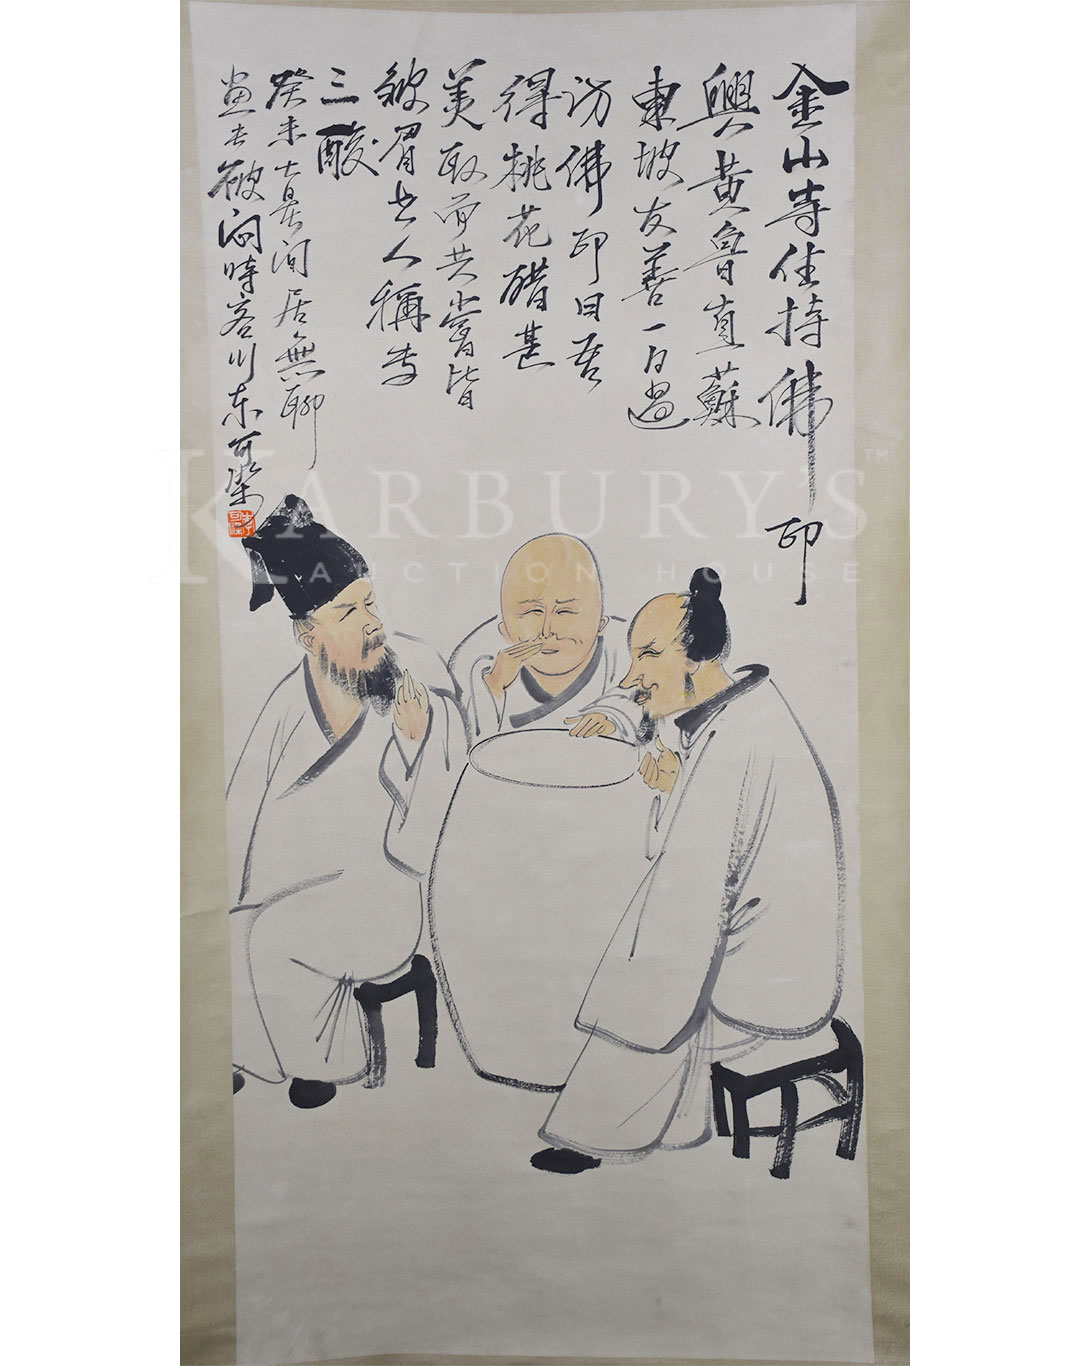 金山寺住持佛印
與黃魯直蘇
東坡友善一日過
訪佛印曰吾
得桃花醋甚
美取而共嘗皆
皴眉世人稱爲
三酸
癸未大暑閒居無聊
畫此破悶時客川东可染
KARBURY'S™
AUCTION HOUSE